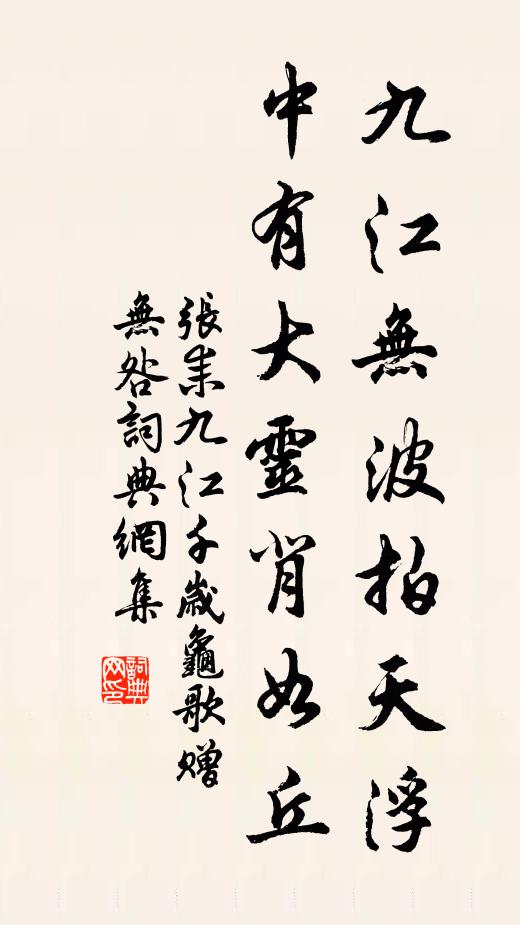 九江無波拍天浮
中有大靈背如丘
張耒九江千歲龜歌贈
無咎詞典網集
詞典网印